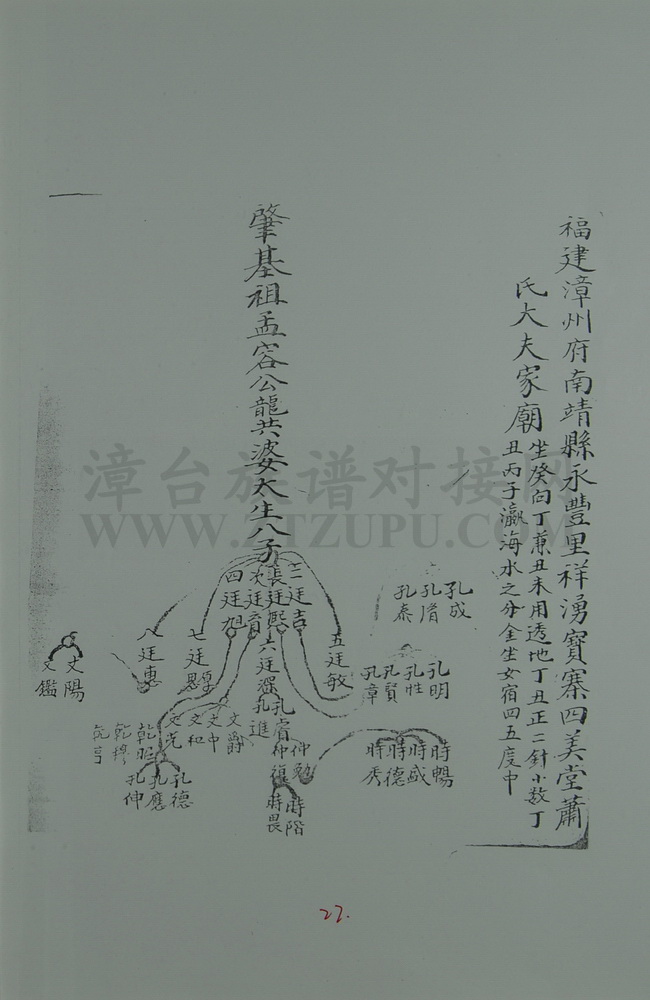 福建漳州府南靖縣永豐里祥湧寶寨四美堂蕭
氏大夫家廟
坐癸向丁兼丑未用透地丁丑正二針小数丁
丑丙子瀛海水之分金坐女宿四五度中
肇基祖孟容公龍共婆太生八子
三廷吉
長廷熙
次廷育
四廷旭
五廷敏
六廷深
七廷恩
八廷惠
孔成
孔脩
孔泰
孔明
孔性
孔賢
孔章
時暢
時盛
時德
時秀
仲勉
時階
時畏
孔進
文爵
文中
文和
文光
孔德
孔應
孔伸
乾昭
乾穆
乾亨
文陽
文鑑
漳台族谱对接网
WWW.ZTZUPU.COM
27.